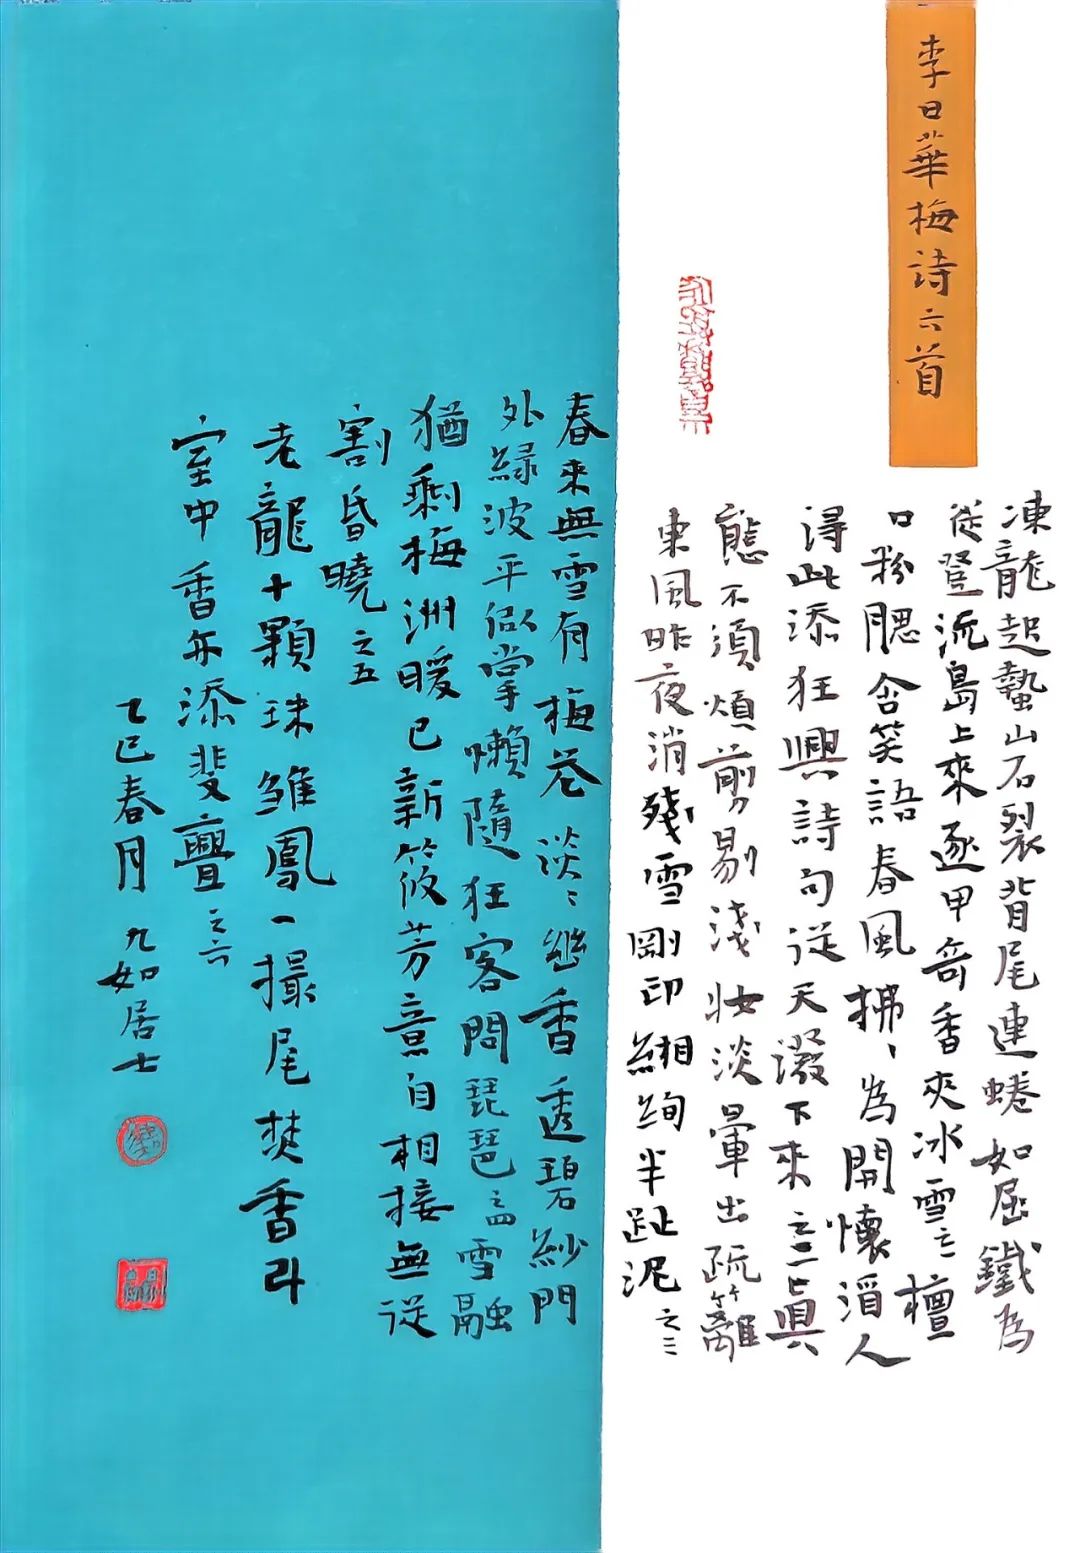 李日華梅詩六首
凍龍起蟄山石裂背尾連蜷如屈鐵為
從登沉島上來逐甲奇香夾冰雪之一 檀
口粉腮含笑語春風拂拂為開懷滔人
得此添狂興詩句從天潑下來之二 真
態不須煩剪剔淺妝淡暈出疏籬
東風昨夜消殘雪剛印緗絢半趾泥之三
春來無雪有梅花淡淡繼香透碧紗門
外綠波平似掌懶隨狂客問琵琶之四 雪融
猶剩梅洲暖已新筱芳意自相接無從
割昏曉之五
老龍十顆珠雛鳳一撮尾焚香斗
室中香亦添斐亹之六
乙巳春月九如居士